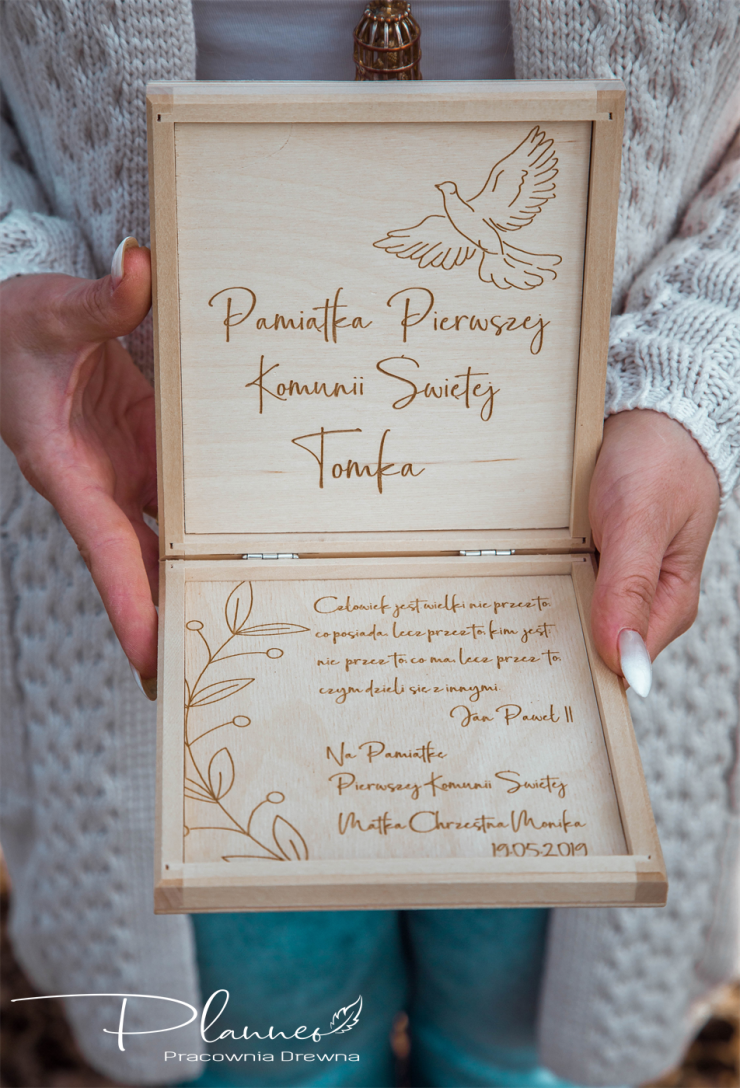 Pamiątka Pierwszej
Komunii Świętej
Tomka
Człowiek jest wielki nie przez to,
co posiada, lecz przez to, kim jest;
nie przez to, co ma, lecz przez to,
czym dzieli się z innymi.
Jan Paweł II
Na Pamiątkę
Pierwszej Komunii Świętej
Matka Chrzestna Monika
19.05.2019
Planneo
Pracownia Drewna